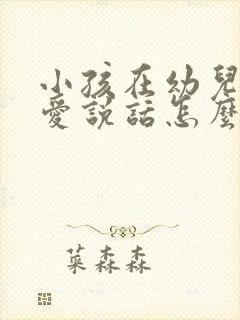 小孩在幼兒
愛說話怎麼
菜森森